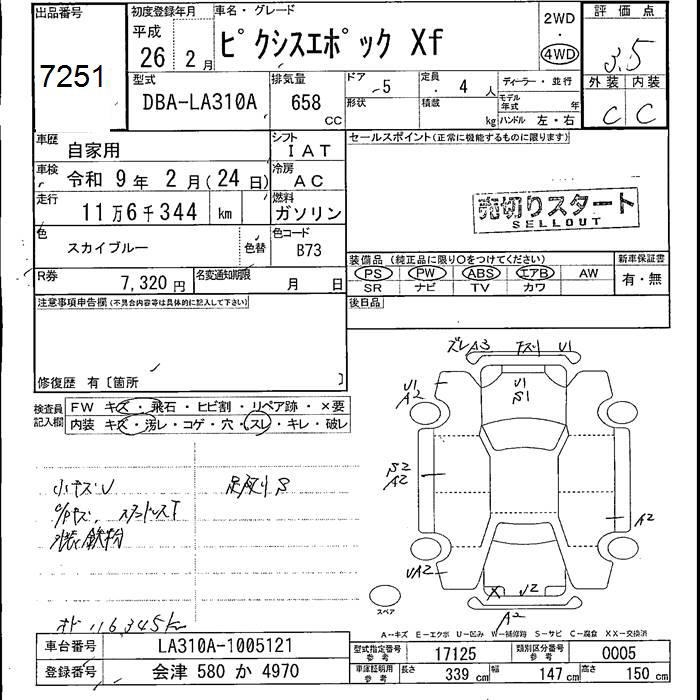 出品番号
7251
初度登録年月
平成
26 2月
車名・グレード
ピクシスエポック Xf
2WD
・
4WD
評価点
3.5
外装 内装
C C
型式
DBA-LA310A
排気量
658
CC
ドア
5
形状
定員
4人
積載
kg
ディーラー・並行
モデル年式 年
ハンドル 左・右
車歴
自家用
シフト
IAT
車検
令和 9年 2月(24日)
冷房
AC
走行
11万6千344 km
燃料
ガソリン
色
スカイブルー
色替
色コード
B73
R券
7,320円
名変通知期限
月 日
セールスポイント(正常に機能するものに限ります)
売切りスタート
SELLOUT
装備品(純正品に限り〇をつけてください)
PS PW ABS エアB AW
SR ナビ TV カワ
新車保証書
有・無
後日品
注意事項申告欄(不具合内容等は具体的に記入して下さい)
修復歴 有〔箇所 〕
検査員
記入欄
FW キズ・飛石・ヒビ割・リペア跡・×要
内装 キズ・汚レ・コゲ・穴・スレ・キレ・破レ
小キズU
足廻りS
外装鉄粉
116,345k
ズレA3
キズリ U1
U1
A2
U1
S1
S2
A2
A2
UA2
X U2
A2
スペア
A-キズ E-エクボ U-凹み W-補修跡 S-サビ C-腐食 XX-交換済
車台番号
LA310A-1005121
登録番号
会津 580 か 4970
型式指定番号
参考
17125
類別区分番号
参考
0005
車庫証明用
参考
長さ 339 cm 幅 147 cm 高さ 150 cm